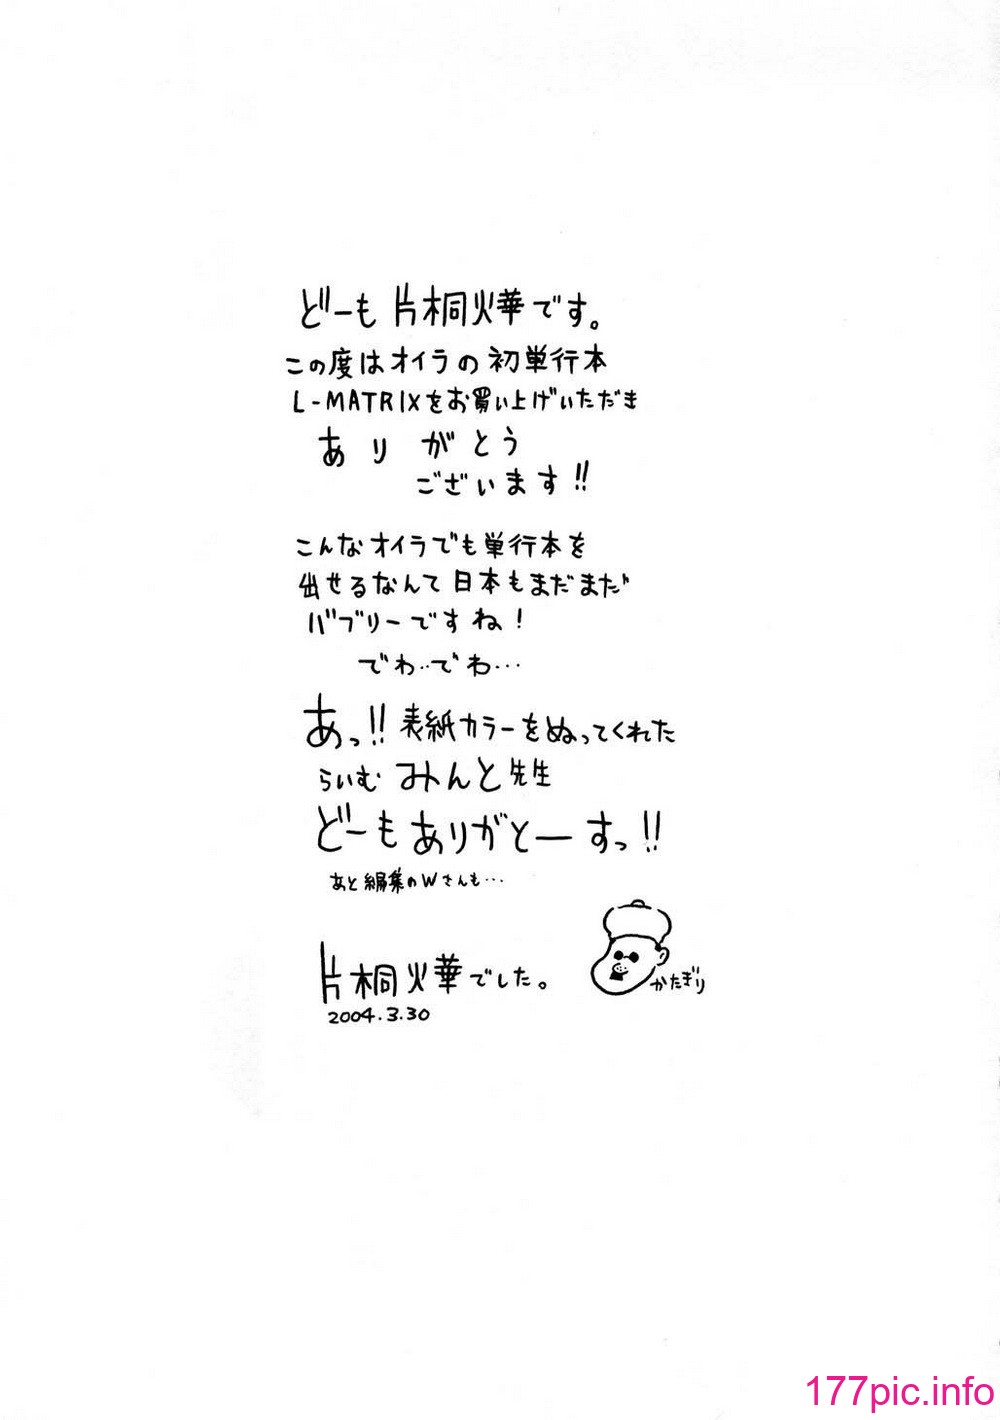 どーも 片桐火華です。
この度はオイラの初単行本
L-MATRIXをお買い上げいただき
ありがとう
ございます!!
こんなオイラでも単行本を
出せるなんて日本もまだまだ
バブリーですね!
でわ‥でわ…
あっ!!表紙カラーをぬってくれた
らいむみんと先生
どーもありがとーすっ!!
あと編集のWさんも…
片桐火華でした。
かたぎり
2004.3.30
177pic.info